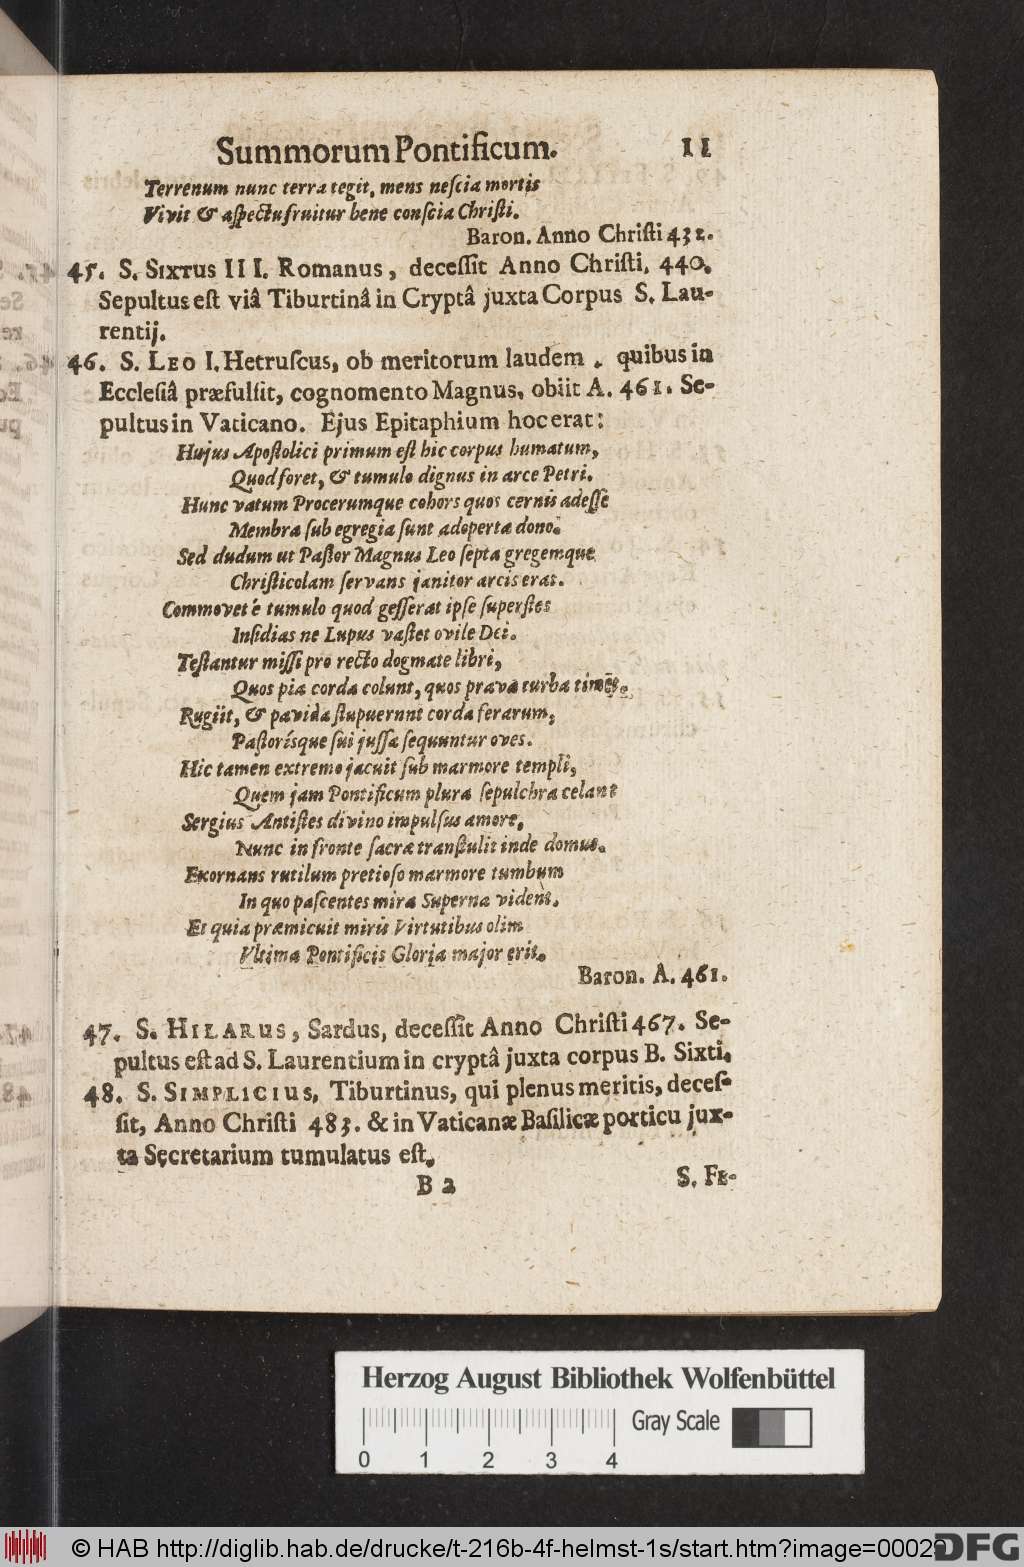 Summorum Pontificum. 11
Terrenum nunc terra tegit, mens neſcia mortis
Vivit & aſpectu fruitur bene conſcia Chriſti.
Baron. Anno Chriſti 432.
45. S. SIXTUS III. Romanus, deceſſit Anno Chriſti. 440.
Sepultus eſt viâ Tiburtinâ in Cryptâ juxta Corpus S. Lau-
rentij.
46. S. LEO I. Hetruſcus, ob meritorum laudem. quibus in
Eccleſiâ præfulſit, cognomento Magnus, obiit A. 461. Se-
pultus in Vaticano. Ejus Epitaphium hoc erat:
Hujus Apoſtolici primum eſt hic corpus humatum,
Quod foret, & tumulo dignus in arce Petri.
Hunc vatum Procerumque cohors quos cernis adeſſe
Membra ſub egregia ſunt adoperta dono.
Sed dudum ut Paſtor Magnus Leo ſepta gregemque
Chriſticolam ſervans janitor arcis erat.
Commovet é tumulo quod geſſerat ipſe ſuperſtes
Inſidias ne Lupus vaſtet ovile Dei.
Teſtantur miſſi pro recto dogmate libri,
Quos pia corda colunt, quos prava turba timēt.
Rugiit, & pavida ſtupuernnt corda ferarum,
Paſtorísque ſui juſſa ſequuntur oves.
Hic tamen extremo jacuit ſub marmore templi,
Quem jam Pontificum plura ſepulchra celant
Sergius Antiſtes divino impulſus amore,
Nunc in fronte ſacræ tranſtulit inde domus.
Exornans rutilum pretioſo marmore tumbum
In quo paſcentes mira Superna vident.
Et quia præmicuit miris Virtutibus olim
Ultima Pontificis Gloria major erit.
Baron. A. 461.
47. S. HILARUS, Sardus, deceſſit Anno Chriſti 467. Se-
pultus eſt ad S. Laurentium in cryptâ juxta corpus B. Sixti.
48. S. SIMPLICIUS, Tiburtinus, qui plenus meritis, deceſ-
ſit, Anno Chriſti 483. & in Vaticanæ Baſilicæ porticu jux-
ta Secretarium tumulatus eſt.
B 2 S. FE-
Herzog August Bibliothek Wolfenbüttel
Gray Scale
0 1 2 3 4
© HAB http://diglib.hab.de/drucke/t-216b-4f-helmst-1s/start.htm?image=00029
DFG